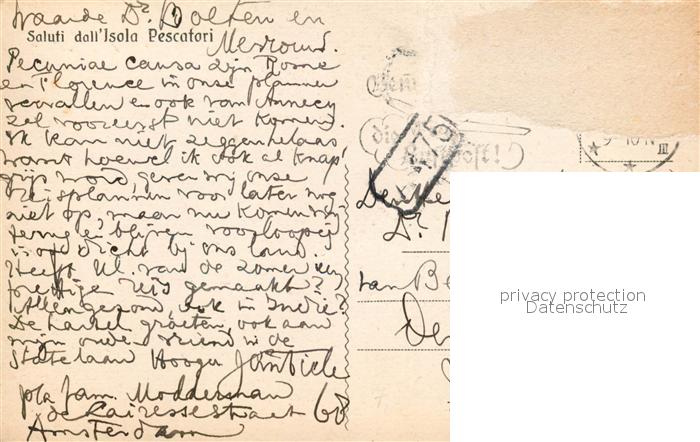 waarde Dr. Bolten en
Saluti dall'Isola Pescatori
Mevrouw.
Pecuniae causa zijn Rome
en Florence in onze plannen
vervallen en ook van Annecy
zal vooreerst niet komen.
Ik kan niet zeggen helaas
want hoewel ik ook al knap
grijs word, geven wij onze
reisplannen voor later nog
niet op, maar nu komen wij
terug en blijven voorloopig
dicht bij ons land.
Heeft U. van de zomer een
prettige reis gemaakt?
Allen gezond, ook in Indië?
De hartel. groeten, ook aan
mijn ouden vriend in de
Statelaan
p/a fam. Modderman
de Lairessestraat 68
Amsterdam
die
Luftpost!
9-10 N
III
Dr.
van Be
privacy protection
Datenschutz